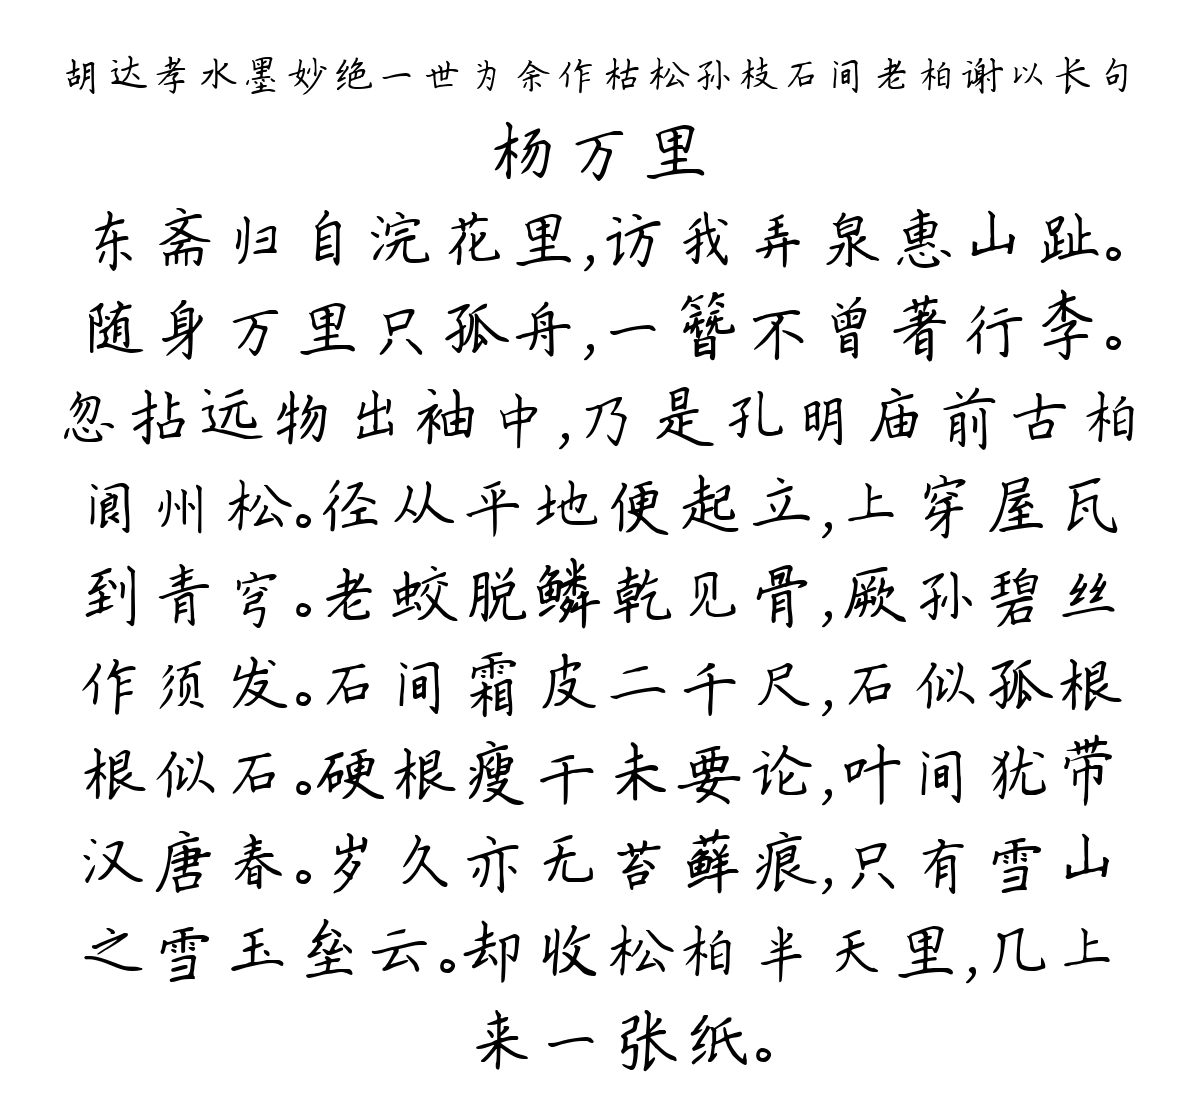 胡达孝水墨妙绝一世为余作枯松孙枝石间老柏谢以长句
杨万里
东斋归自浣花里,访我弄泉惠山趾。
随身万里只孤舟,一簪不曾著行李。
忽拈远物出袖中,乃是孔明庙前古柏
阆州松。径从平地便起立,上穿屋瓦
到青穹。老蛟脱鳞乾见骨,厥孙碧丝
作须发。石间霜皮二千尺,石似孤根
根似石。硬根瘦干未要论,叶间犹带
汉唐春。岁久亦无苔藓痕,只有雪山
之雪玉垒云。却收松柏半天里,几上
来一张纸。